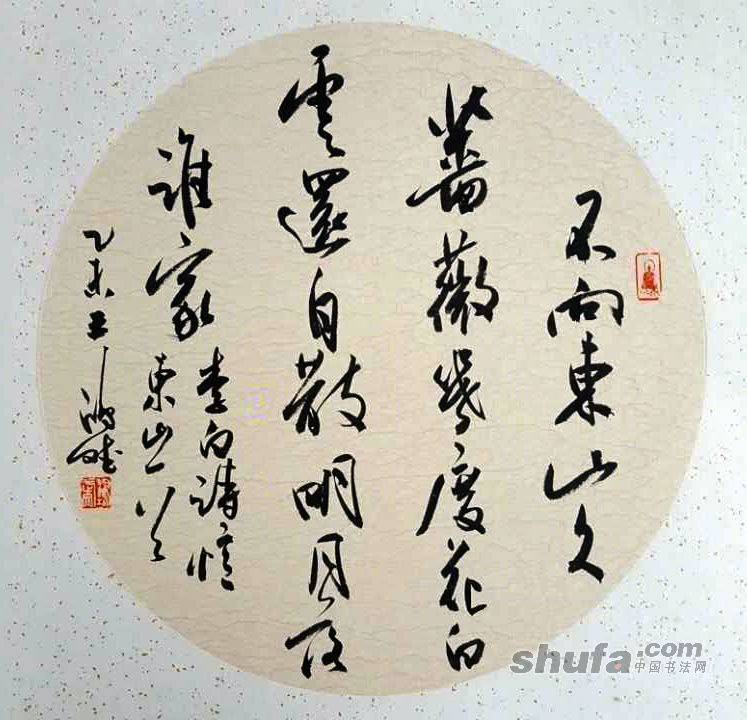 不向東山久
薔薇幾度花白
雲還自散明月落
誰家
李白詩憶
東山一首
乙未 王
shufa.com
中国书法网